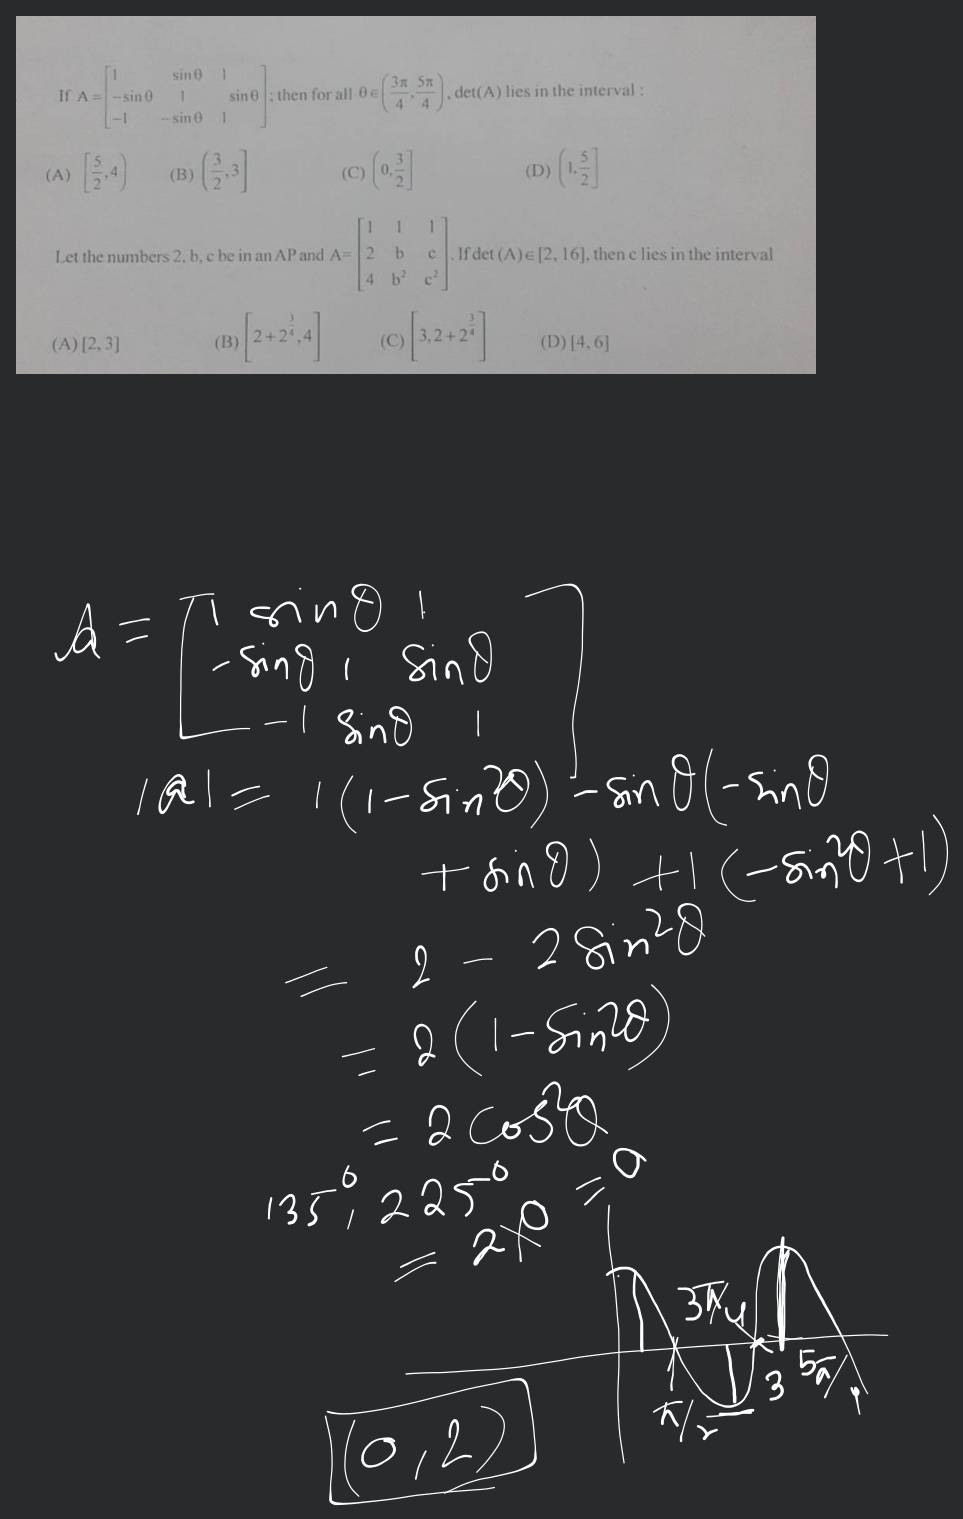 If A = [1 sinθ 1; -sinθ 1 sinθ; -1 -sinθ 1]; then for all θ∈(3π/4, 5π/4), det(A) lies in the interval :
(A) [5/2, 4) (B) (3/2, 3] (C) (0, 3/2] (D) (1, 5/2]
Let the numbers 2, b, c be in an AP and A= [1 1 1; 2 b c; 4 b² c²]. If det (A)∈[2, 16], then c lies in the interval
(A) [2, 3] (B) [2+2^(3/4), 4] (C) [3, 2+2^(3/4)] (D) [4, 6]
A = [1 sinθ 1
-sinθ 1 sinθ
-1 sinθ 1]
|a| = 1(1-sin²θ) -sinθ(-sinθ
+ sinθ) +1(-sin²θ+1)
= 2 - 2sin²θ
= 2(1-sin²θ)
= 2cos²θ
135°, 225° = 0
= 2x0
3π/4
π/2 3 5π/
(0,2)